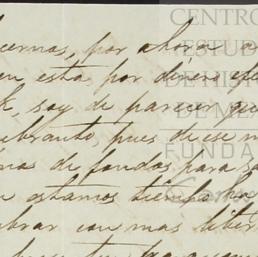 cernos, por ahora a
en esta por dinero efe
k, soy de parecer que
ebranto, pues de ese m
nos de fondos para s
n estamos tiempo ha
obrar con mas liber
CENTRO
ESTUD
DE HIS
DE MÉ
FUNDA